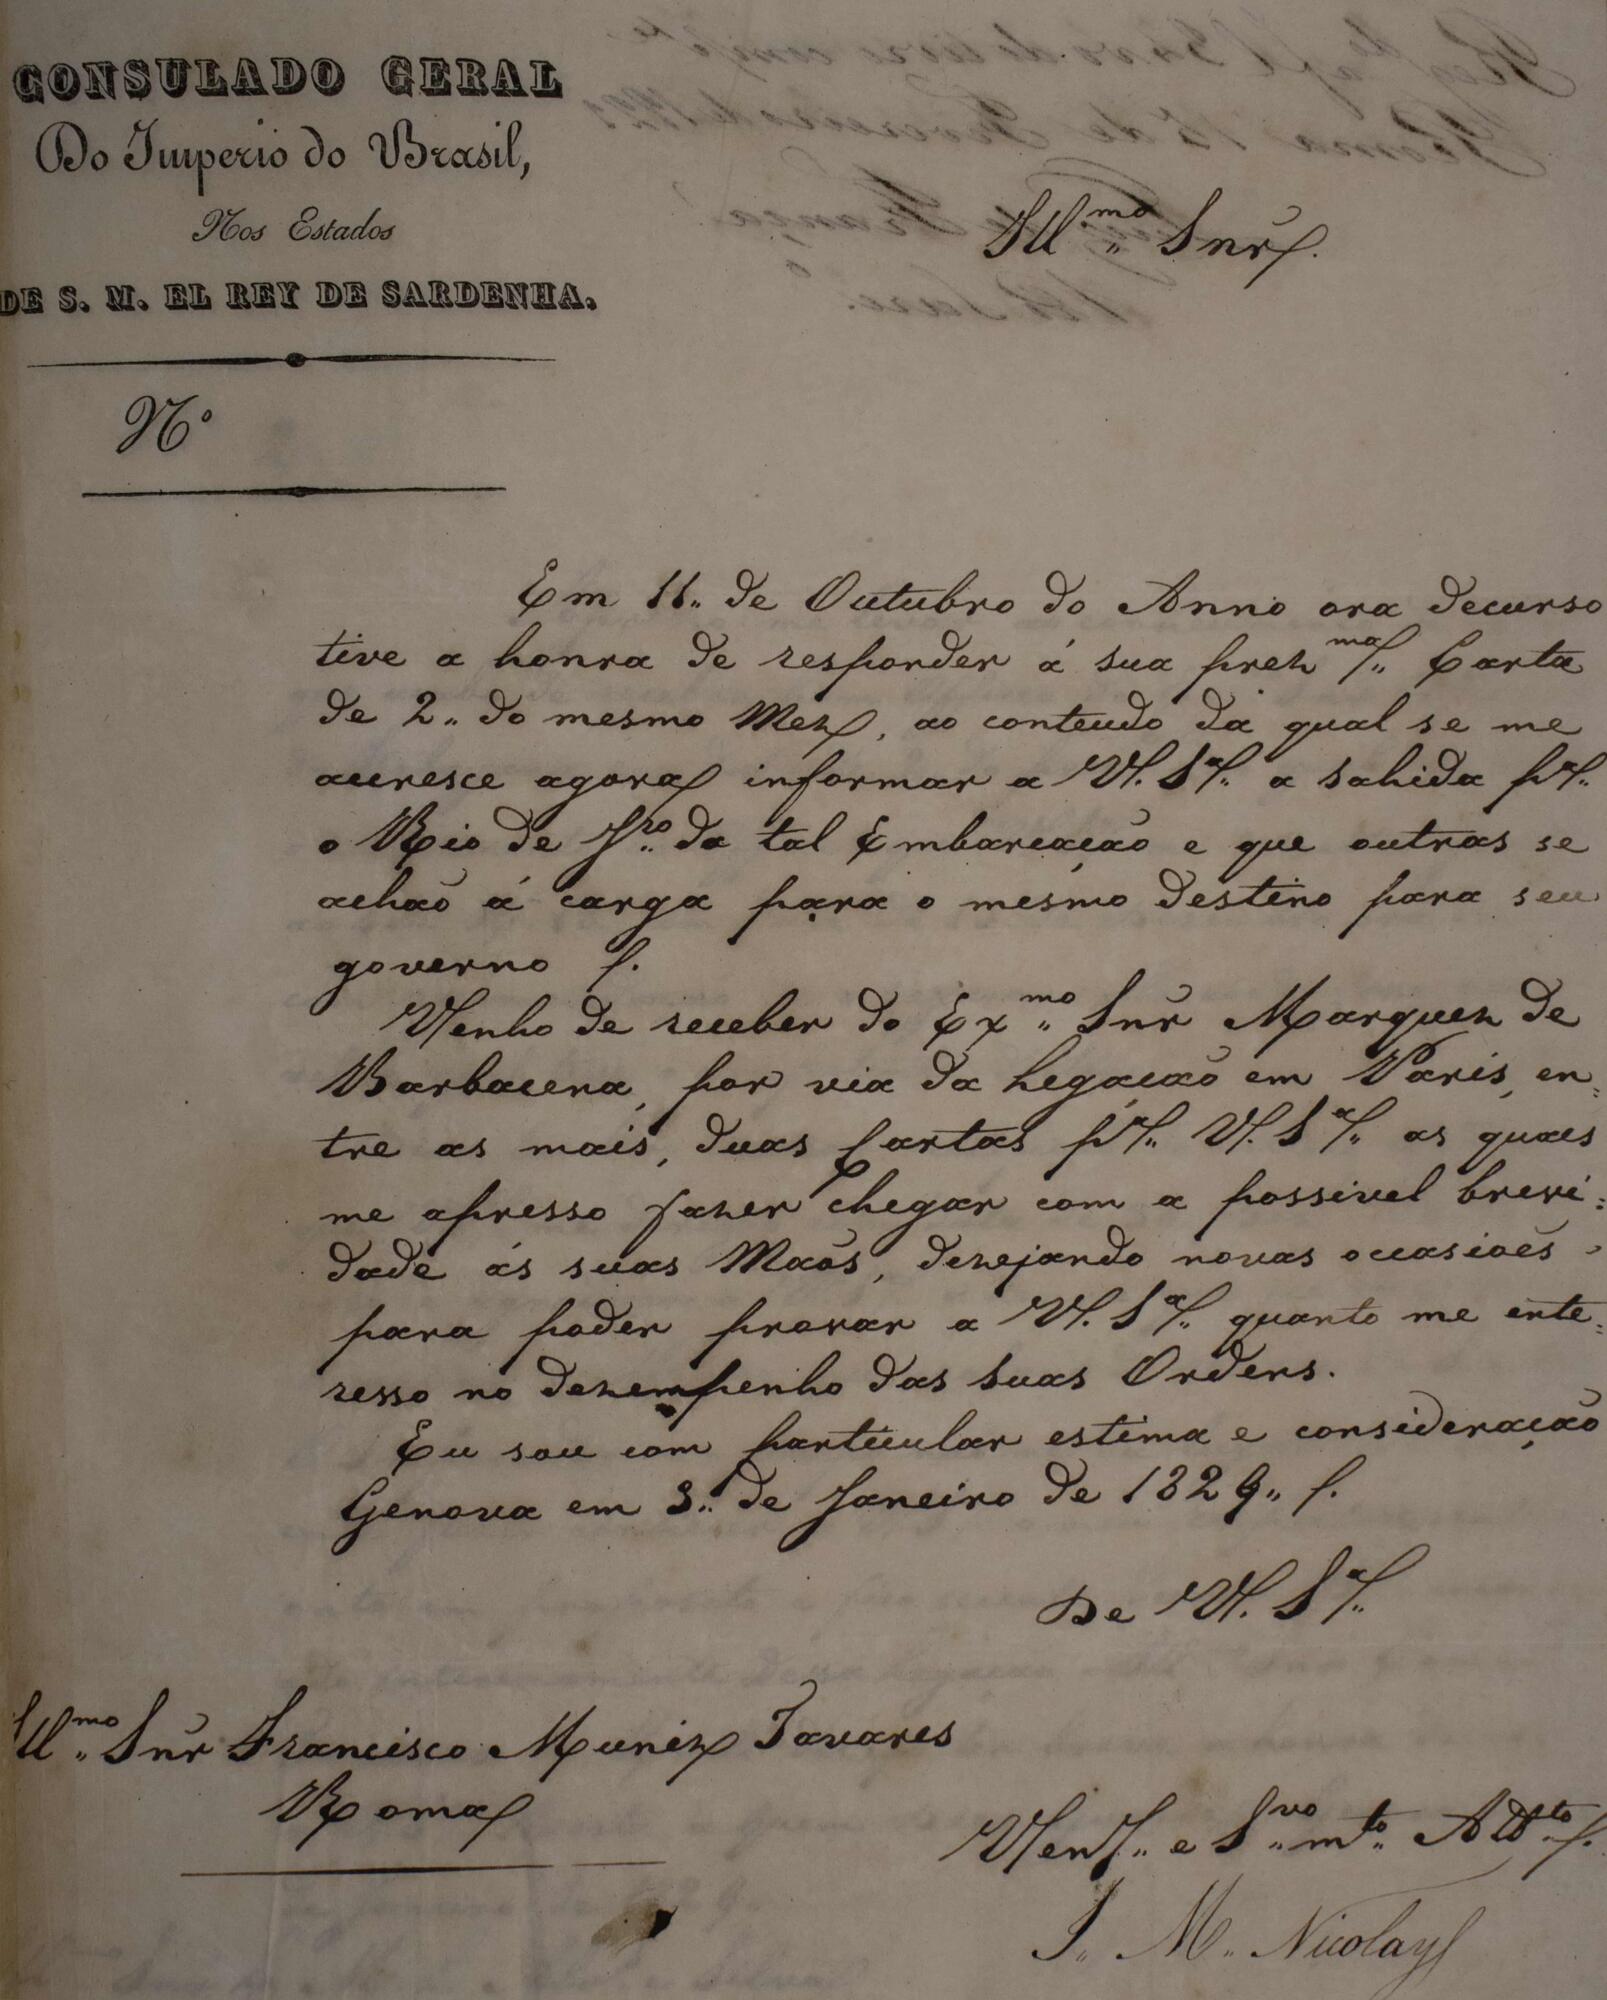 CONSULADO GERAL
Do Imperio do Brasil,
Nos Estados
DE S. M. EL REY DE SARDENHA.
Nº
Ill.mo Snr.
Em 11. de Outubro do Anno ora decurso
tive a honra de responder á sua prez.ma Carta
de 2. do mesmo Mez, ao conteudo da qual se me
acresce agora informar a V. S.a a sahida p.a
o Rio de J.ro da tal Embarcação e que outras se
achão á carga para o mesmo destino para seu
governo
Venho de receber do Ex.mo Snr Marquez de
Barbacena, por via da Legação em Paris, en=
tre as mais, duas Cartas p.a V. S.a as quaes
me apresso fazer chegar com a possivel brevi=
dade ás suas Maõs, dezejando novas occasioẽs
para poder provar a V. S.a quanto me inte=
resso no dezempenho das suas Ordens.
Eu sou com particular estima e consideração
Genova em 3. de Janeiro de 1829.
De V. S.a
Ill.mo Snr Francisco Muniz Tavares
Roma
Ven.r e S.vo m.to Att.to
J. M. Nicolay